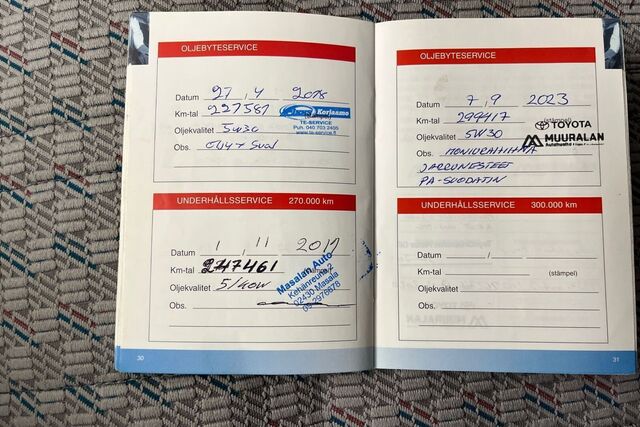 OLJEBYTESERVICE
Datum 27 , 4 2018
Km-tal 227581
Korjaamo
TE-SERVICE
Puh. 040 703 2405
www.te-service.fi
Oljekvalitet 5W30
Obs. Öljy + Suod
UNDERHÅLLSSERVICE 270.000 km
Datum 1 , 11 2019
Km-tal 247461
Oljekvalitet 5/40W
Obs.
Masalan Auto
02430 Masala
09-2976678
30
OLJEBYTESERVICE
Datum 7 , 9 2023
Km-tal 299417 (stämpel)
Oljekvalitet 5W30
TOYOTA
MUURALAN
Obs. MONIURAHIHNA
JARRUNESTEET
PA-SUODATIN
UNDERHÅLLSSERVICE 300.000 km
Datum /
Km-tal (stämpel)
Oljekvalitet
Obs.
31